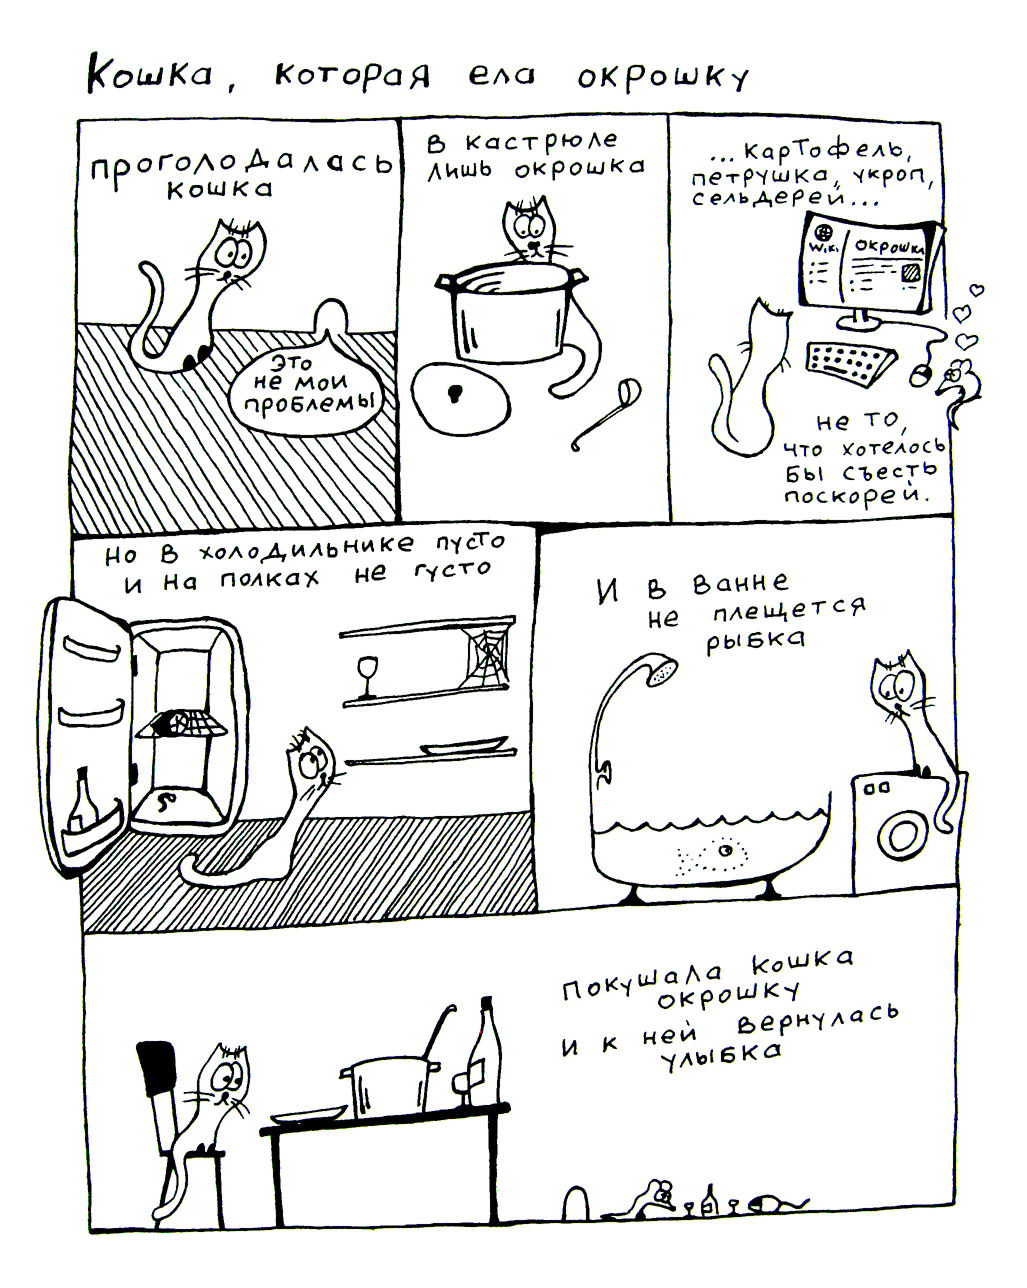 Кошка, которая ела окрошку
проголодалась
кошка
Это
не мои
проблемы
В кастрюле
лишь окрошка
...картофель,
петрушка, укроп,
сельдерей...
Wiki
ОКРОШКА
не то,
что хотелось
бы съесть
поскорей.
Но в холодильнике пусто
и на полках не густо
И в ванне
не плещется
рыбка
Покушала кошка
окрошку
и к ней вернулась
улыбка